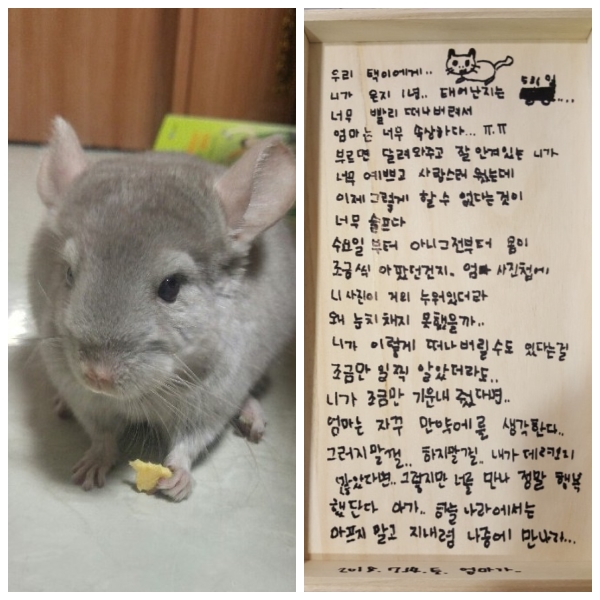 우리 택이에게..
니가 온지 1년.. 태어난지는
너무 빨리 떠나버려서
엄마는 너무 속상하다... ㅠ.ㅠ
부르면 달려와주고 잘 안겨있는 니가
너무 예쁘고 사랑스러웠는데
이제 그렇게 할 수 없다는것이
너무 슬프다
수요일부터 아니 그전부터 몸이
조금씩 아팠던건지. 엄마 사진첩에
니 사진이 거의 누워있더라
왜 눈치채지 못했을까..
니가 이렇게 떠나버릴수도 있다는걸
조금만 일찍 알았더라도..
니가 조금만 기운내 줬다면..
엄마는 자꾸 만약에를 생각한다..
그러지말껄.. 하지말껄.. 내가 데려오지
않았다면.. 그렇지만 너를 만나 정말 행복
했단다 아가.. 하늘나라에서는
아프지 말고 지내렴 나중에 만나자...
2018. 7.14. 토. 엄마가.